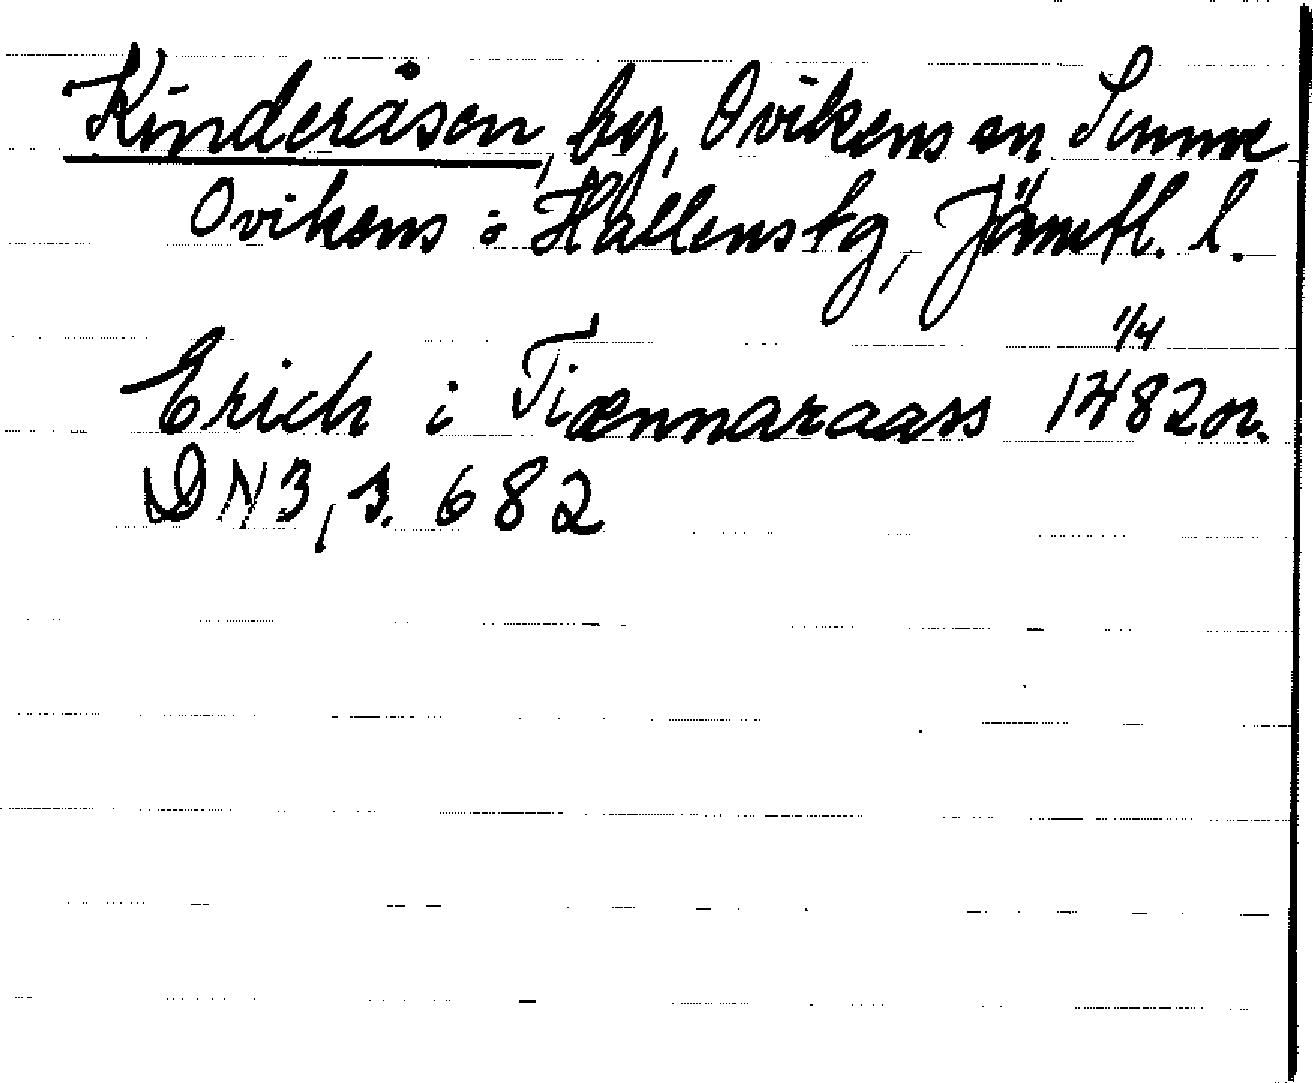 Kinderåsen, by, Ovikens sn, Sunne
Ovikens o Hallens tg, Jämtl. l.
1/4
Erich i Tiænnaraass 1482 or.
DN3, s. 682